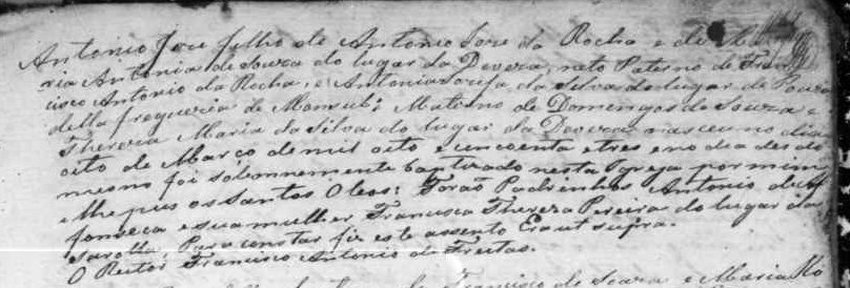 Antonio Jose filho de Antonio Jose da Rocha e de Ma
ria Antonia de Souza do lugar da Deveza, neto Paterno de Fran
cisco Antonio da Rocha, e Antonia Josefa da Silva do lugar de
della freguezia de Matterno de Domengos de Souza e
Thereza Maria da Silva do lugar da Deveza nasceu no dia
oito de Março de mil oito e cincoenta e tres e no dia des do
mesmo foi solemnemente baptizado nesta Igreja por mim
e lhe pus os Santos Oleos: Forão Padrinhos Antonio da
fonseca e sua mulher Francisca Thereza Pereira do lugar da
Para constar fiz este assento Era ut supra.
O Reitor Francisco Antonio de Freitas.
Francisco de Souza e Maria